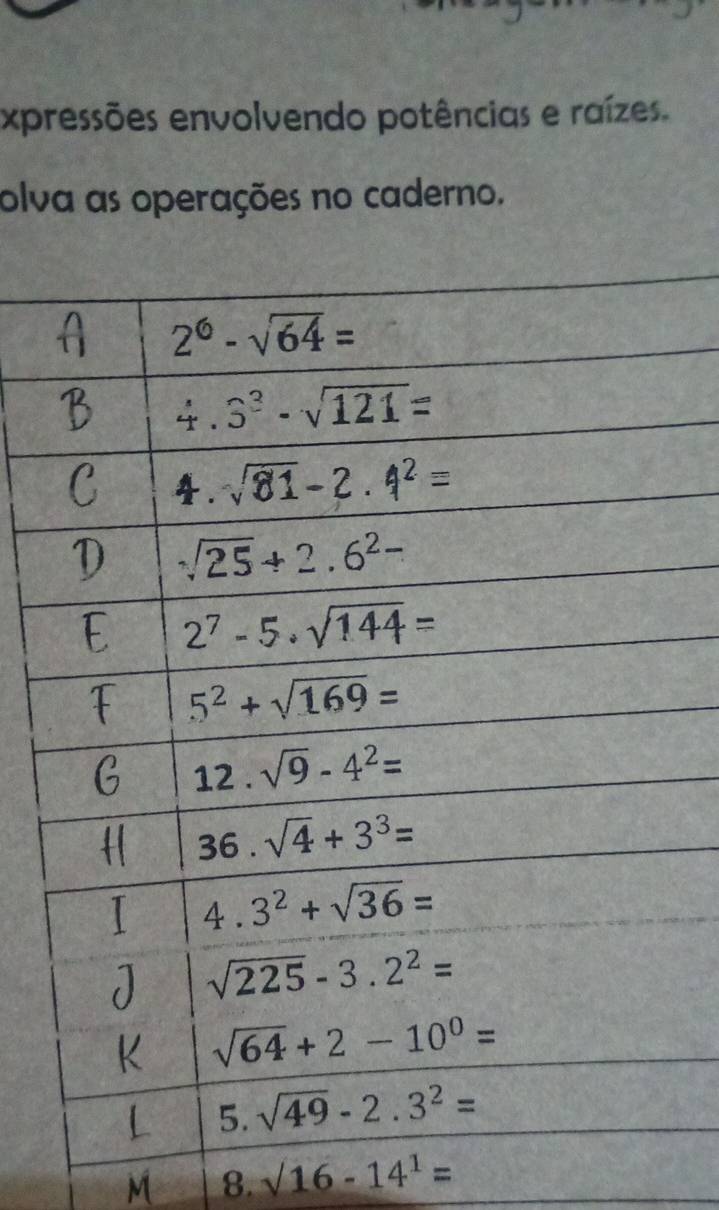 xpressões envolvendo potências e raízes.
olva as operações no caderno.
A 2⁶ - √64 =
B 4 . 3³ - √121 =
C 4 . √81 - 2 . 4² =
D √25 + 2 . 6² -
E 2⁷ - 5 . √144 =
F 5² + √169 =
G 12 . √9 - 4² =
H 36 . √4 + 3³ =
I 4 . 3² + √36 =
J √225 - 3 . 2² =
K √64 + 2 - 10⁰ =
L 5. √49 - 2 . 3² =
M 8. √16 - 14¹ =